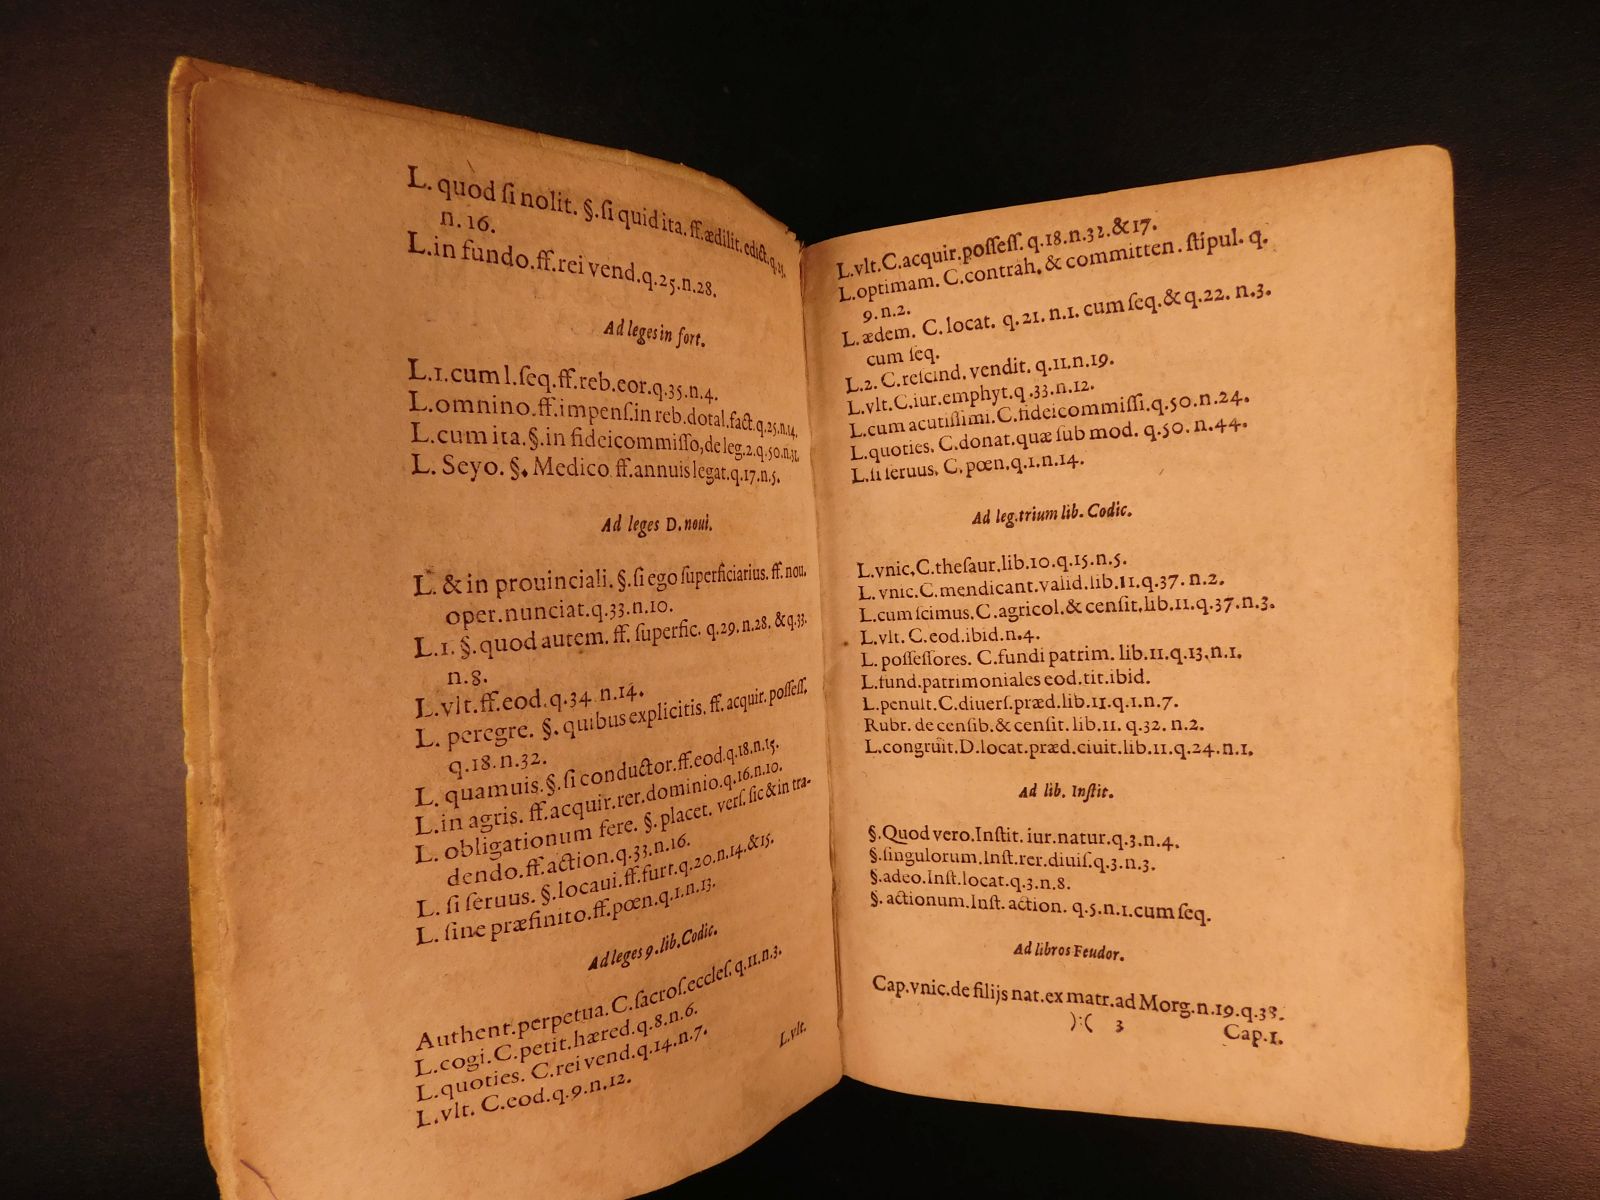 L. quod ſi nolit. §. ſi quid ita. ff. ædilit. edict. q.23.
n. 16.
L. in fundo. ff. rei vend. q. 25. n. 28.
Ad leges in fort.
L. 1. cum l. ſeq. ff. reb. eor. q. 35. n. 4.
L. omnino. ff. impenſ. in reb. dotal. fact. q. 25. n. 14.
L. cum ita. §. in fideicommiſſo, de leg. 2. q. 50. n. 31.
L. Seyo. §. Medico ff. annuis legat. q. 17. n. 5.
Ad leges D. noui.
L. & in prouinciali. §. ſi ego ſuperficiarius. ff. nou.
oper. nunciat. q. 33. n. 10.
L. 1. §. quod autem. ff. ſuperfic. q. 29. n. 28. & q. 33.
n. 8.
L. vlt. ff. eod. q. 34 n. 14.
L. peregre. §. quibus explicitis. ff. acquir. poſſeſſ.
q. 18. n. 32.
L. quamuis. §. ſi conductor. ff. eod. q. 18. n. 15.
L. in agris. ff. acquir. rer. dominio. q. 16. n. 10.
L. obligationum fere. §. placet. verſ. ſic & in tra-
dendo. ff. action. q. 33. n. 16.
L. ſi ſeruus. §. locaui. ff. furt. q. 20. n. 14. & 15.
L. ſine præfinito. ff. pœn. q. 1. n. 13.
Ad leges 9. lib. Codic.
Authent. perpetua. C. ſacroſ. eccleſ. q. 11. n. 3.
L. cogi. C. petit. hæred. q. 8. n. 6.
L. quoties. C. rei vend. q. 14. n. 7.
L. vlt. C. eod. q. 9. n. 12.
L. vlt.
L. vlt. C. acquir. poſſeſſ. q. 18. n. 32. & 17.
L. optimam. C. contrah. & committen. ſtipul. q.
9. n. 2.
L. ædem. C. locat. q. 21. n. 1. cum ſeq. & q. 22. n. 3.
cum ſeq.
L. 2. C. reſcind. vendit. q. 11. n. 19.
L. vlt. C. iur. emphyt. q. 33. n. 12.
L. cum acutiſſimi. C. fideicommiſſi. q. 50. n. 24.
L. quoties. C. donat. quæ ſub mod. q. 50. n. 44.
L. ſi ſeruus. C. pœn. q. 1. n. 14.
Ad leg. trium lib. Codic.
L. vnic. C. theſaur. lib. 10. q. 15. n. 5.
L. vnic. C. mendicant. valid. lib. 11. q. 37. n. 2.
L. cum ſcimus. C. agricol. & cenſit. lib. 11. q. 37. n. 3.
L. vlt. C. eod. ibid. n. 4.
L. poſſeſſores. C. fundi patrim. lib. 11. q. 13. n. 1.
L. fund. patrimoniales eod. tit. ibid.
L. penult. C. diuerſ. præd. lib. 11. q. 1. n. 7.
Rubr. de cenſib. & cenſit. lib. 11. q. 32. n. 2.
L. congruit. D. locat. præd. ciuit. lib. 11. q. 24. n. 1.
Ad lib. Inſtit.
§. Quod vero. Inſtit. iur. natur. q. 3. n. 4.
§. ſingulorum. Inſt. rer. diuiſ. q. 3. n. 3.
§. adeo. Inſt. locat. q. 3. n. 8.
§. actionum. Inſt. action. q. 5. n. 1. cum ſeq.
Ad libros Feudor.
Cap. vnic. de filijs nat. ex matr. ad Morg. n. 19. q. 38.
):( 3
Cap. 1.